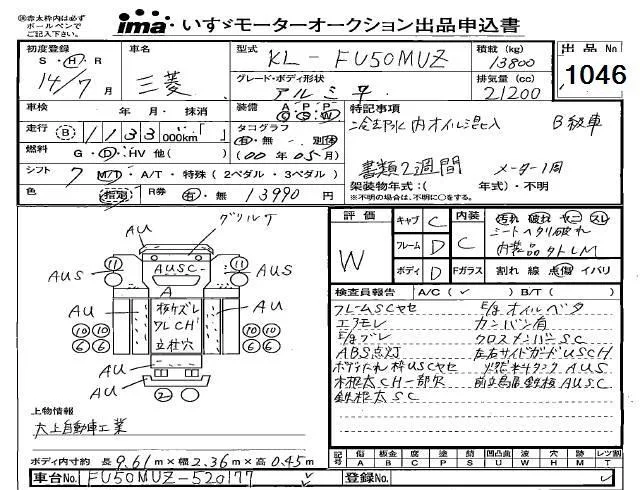 ㊟赤太枠内は必ず
ボールペンで
ご記入下さい。
ima いすゞモーターオークション出品申込書
初度登録 S・H・R 14/7月
車名 三菱
型式 KL-FU50MUZ
グレード・ボディ形状 アルミ平
積載 (kg) 13800
排気量 (cc) 21200
出品No 1046
車検 年・月・抹消
走行 B 1133 000km「 」
燃料 G・D・HV 他( )
シフト 7 M/T・A/T・特殊(2ペダル・3ペダル)
色 指定
R券 有・無 13990円
装備 A P P C S W
タコグラフ 有・無・別体
(00年05月)
特記事項
冷却水内オイル混入 B級車
書類2週間 メーター1周
架装物年式:( 年式)・不明
※不明の場合は、不明に○をする。
評価 W
キャブ C
フレーム D
ボディ D
内装 C
Fガラス
汚れ 破れ ヤニ スレ
シートヘタリ破れ
内装品タトLM
割れ 線 点傷 イバリ
検査員報告 A/C(✓) B/T( )
フレームSCサビ E/gオイルベタ
エアモレ カンバン有
E/gブレ クロスメンバーSC
ABS点灯 左右サイドガードUSCH
根太CH一部欠
鉄根太SC
グリルケ
AU
AUS
AUSC
A
11
11
AUS
AU
AU
10 10
6 6
10 10
6 6
床ケズレ
ワレCH
立柱穴
AU
AU
2
上物情報
大上自動車工業
ボディ内寸約 長9.61m×幅2.36m×高0.45m
車台No. FU50MUZ-520177
記号 傷A 板金B 腐C 塗P 錆S 凹凸曲U 波W 穴H 跡M レツ割T
登録No.